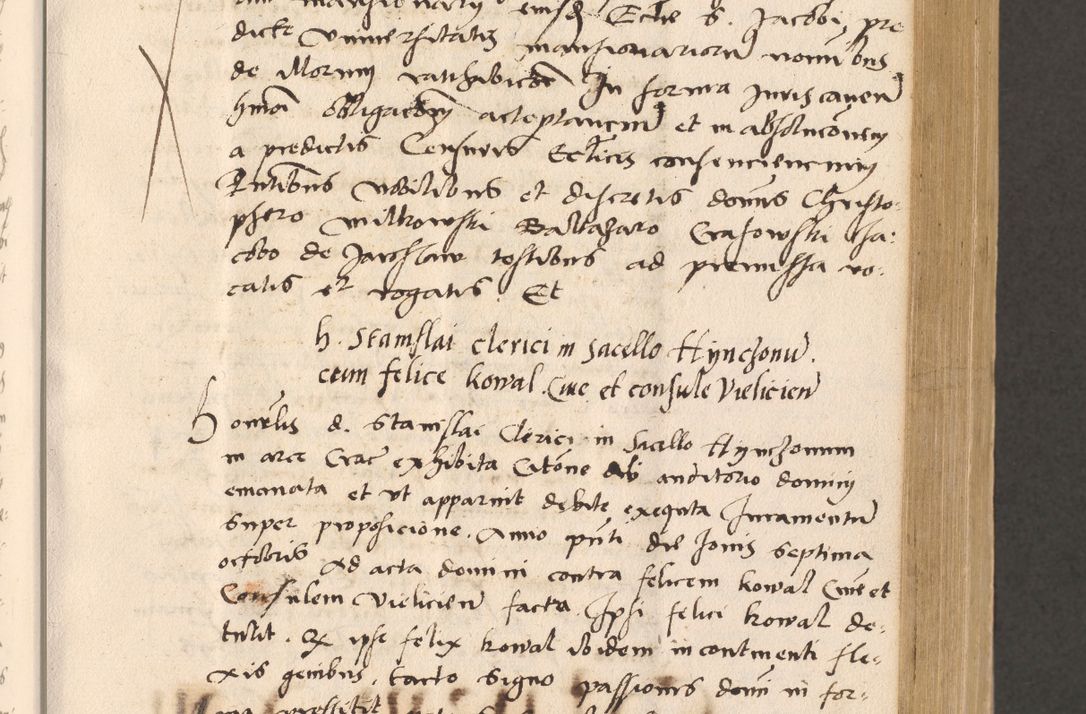 mansionarij eiusd Eccle S. Jacobi, pre
dicte Universitatis mansionariorum nominibus
de illorum ratihabitione In forma Juris camere
hmoi obligationem acceptantem et in absolucionem
a predictis Censuris Ecclicis consencienciumq
Pntibus Nobilibus et discretis domis Christo-
phero Milkowski Baltazaro Crasowski Ja-
cobo de Jaroslaw testibus ad premissa vo-
catis et rogatis. Et
h. Stanislai clerici in sacello Hynczonu.
cum felice kowal Cive et consule Vielicien
Honorabilis d. Stanislai Clerici in Sacello Hynczonum
in arce Crac exhibita Citone ab auditorio domini
emanata et ut apparuit debite exequta Juramentum
super proposicione. Anno pnti die Jovis septima
octobris ad acta domini contra felicem kowal Civem et
Consulem Vielicien facta. Ipsi felici kowal de-
tulit. Et ipse felix kowal ibidem incontinenti fle-
xis genibus, tacto signo passionis domi in for-
ma prestitit